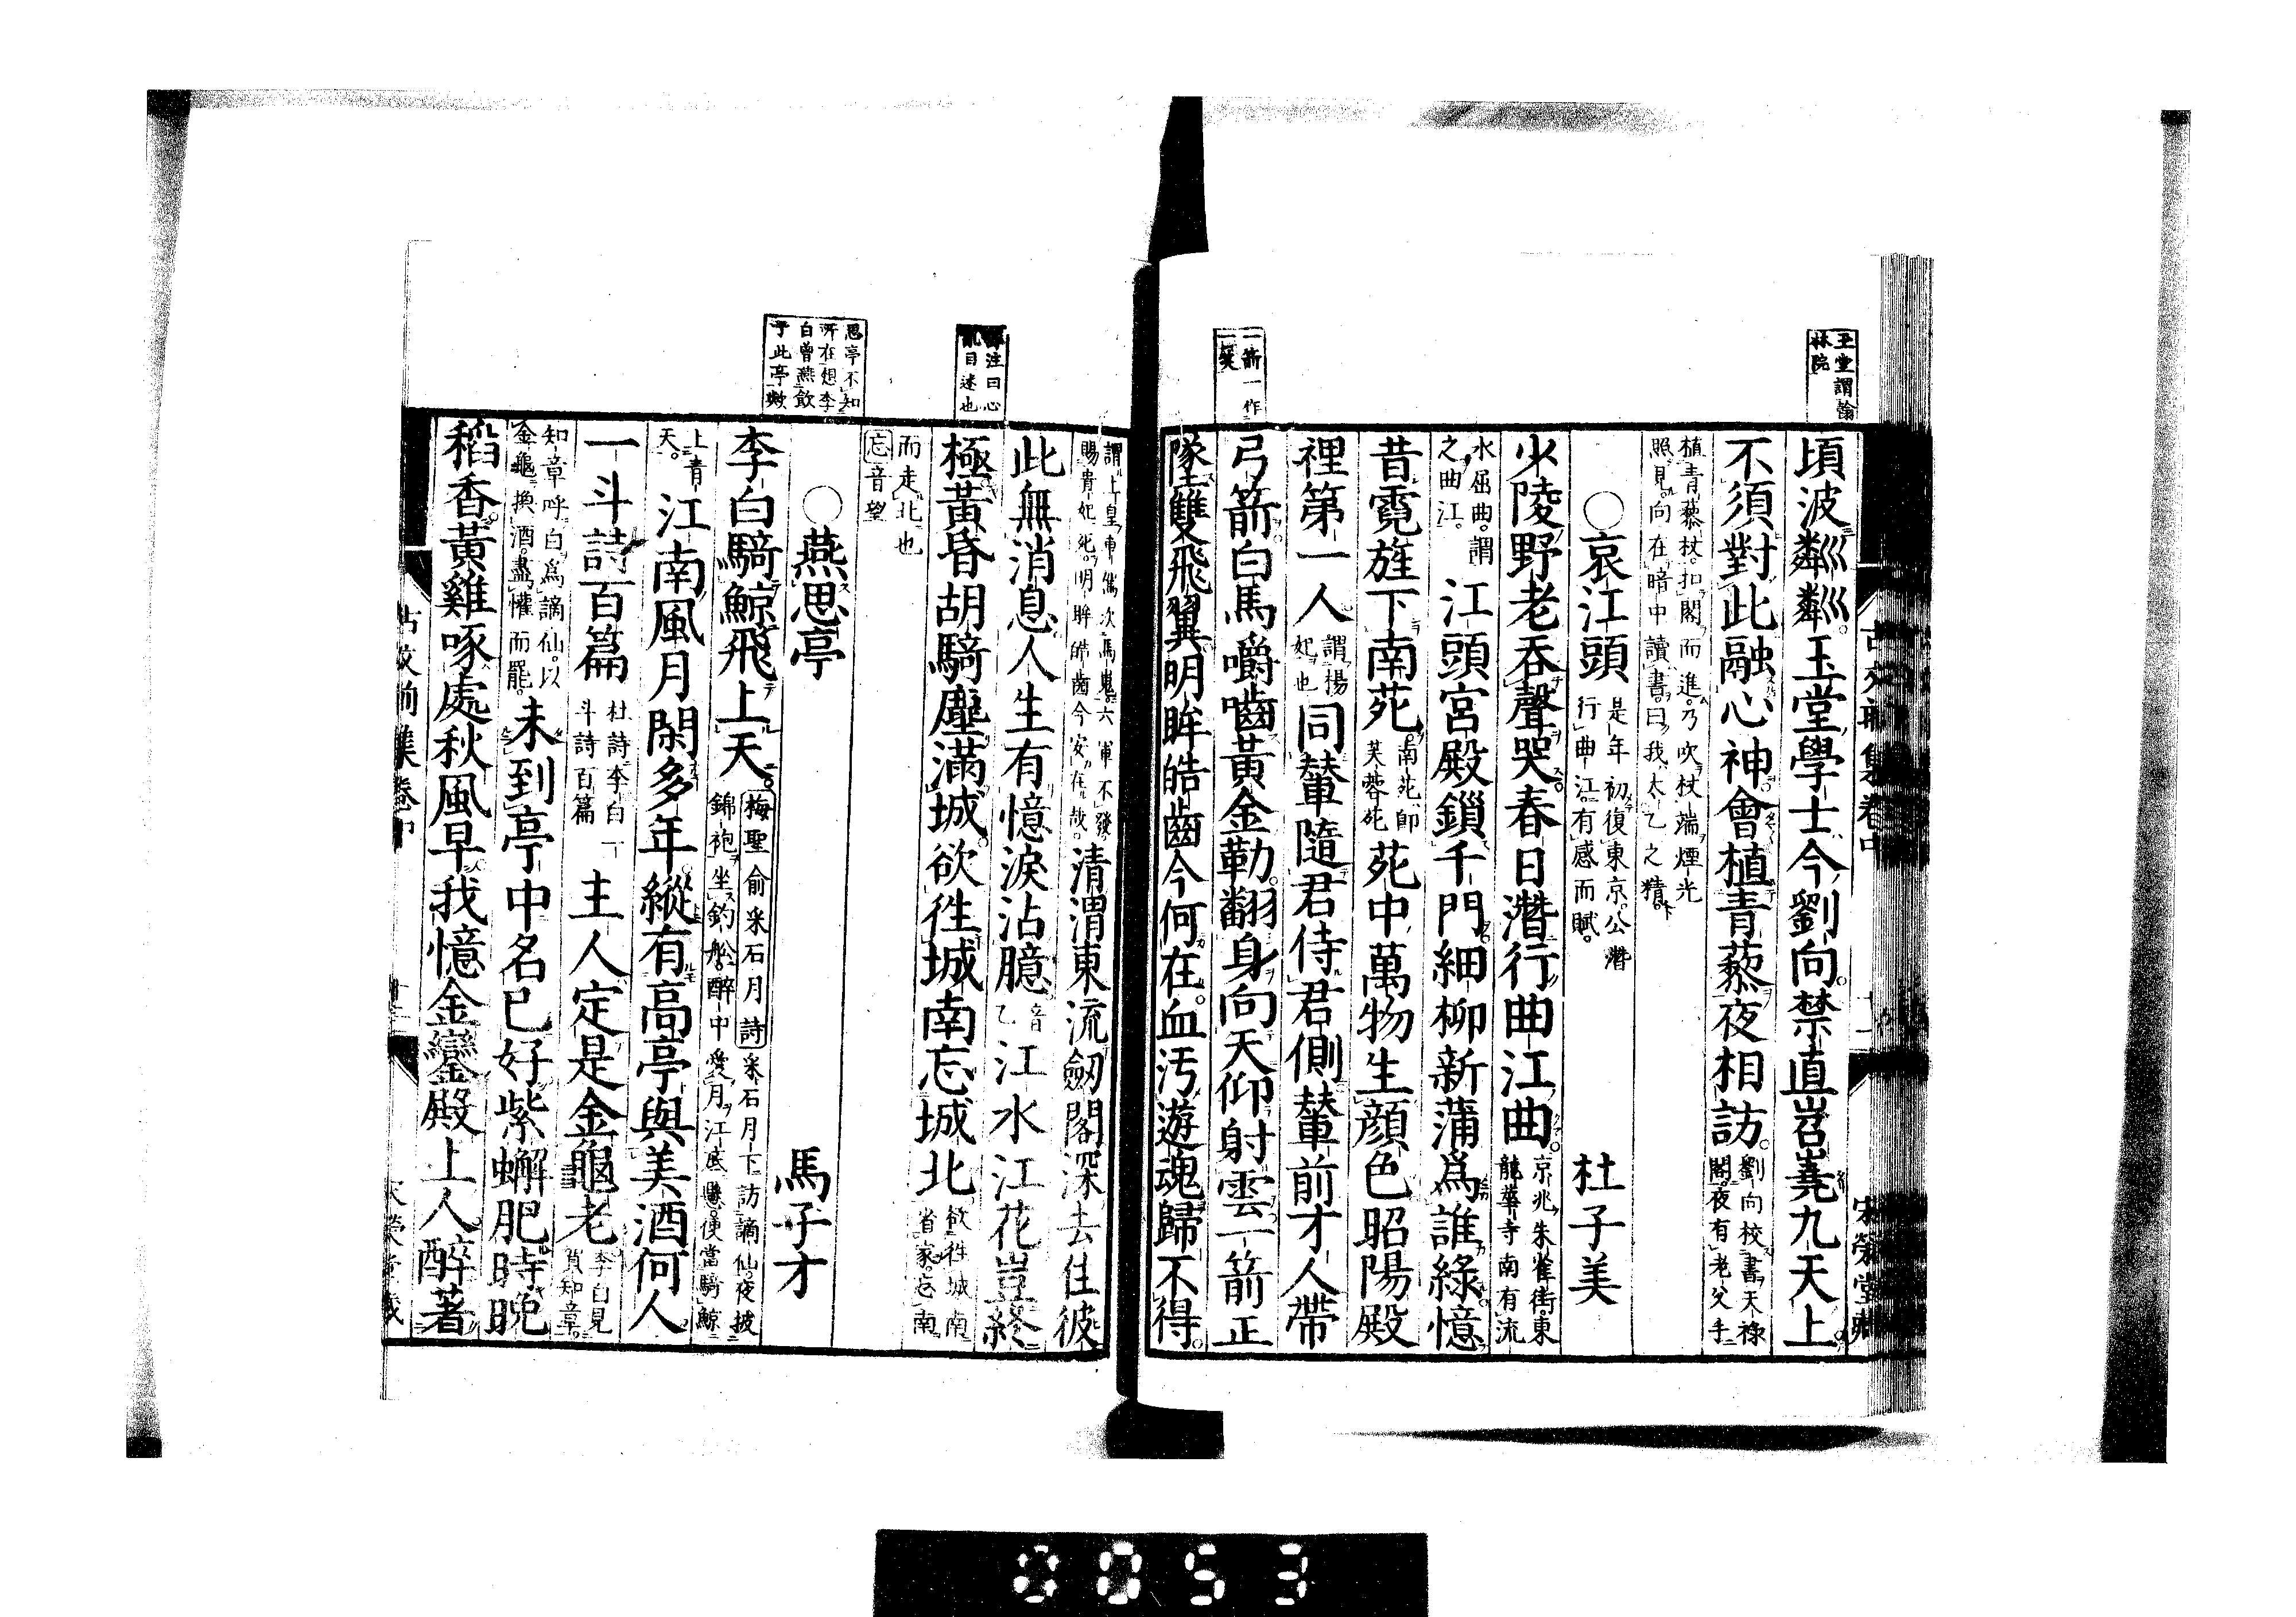 玉堂謂翰
林院
頃波粼粼玉堂學士今劉向禁直岧嶤九天上
不須對此融心神會植青藜夜相訪劉向校書天祿
閣夜有老父手
植青藜杖扣閣而進乃吹杖端煙光
照見向在暗中讀書曰我太乙之精
○哀江頭是年初復東京公潛
行曲江有感而賦 杜子美
少陵野老吞聲哭春日潛行曲江曲京兆朱雀街東
龍華寺南有流
水屈曲謂
之曲江江頭宮殿鎖千門細柳新蒲爲誰綠憶
昔霓旌下南苑南苑即
芙蓉苑苑中萬物生顔色昭陽殿
裡第一人謂楊
妃也同輦隨君侍君側輦前才人帶
弓箭白馬嚼嚙黃金勒翻身向天仰射雲一箭正
墜雙飛翼明眸皓齒今何在血汚遊魂歸不得
一箭一作
一笑
謂上皇車駕次馬嵬六軍不發
賜貴妃死明眸皓齒今安在哉清渭東流劒閣深去住彼
此無消息人生有憶淚沾臆音
乙江水江花豈終
極黃昏胡騎塵滿城欲徃城南忘城北欲徃城南
省家忘南
而走北也
忘音望
注曰心
亂目迷也
○燕思亭 馬子才
思亭不知
所在想李
白曾燕飲
于此亭歟
李白騎鯨飛上天梅聖俞采石月詩采石月下訪謫仙夜披
錦袍坐釣船醉中愛月江底懸便當騎鯨
上青
天江南風月閑多年縱有高亭與美酒何人
一斗詩百篇杜詩李白一
斗詩百篇主人定是金龜老李白見
賀知章
知章呼白爲謫仙以
金龜換酒盡懽而罷未到亭中名已好紫蠏肥時晩
稻香黃雞啄處秋風早我憶金鑾殿上人醉著
古文前集卷中
0053